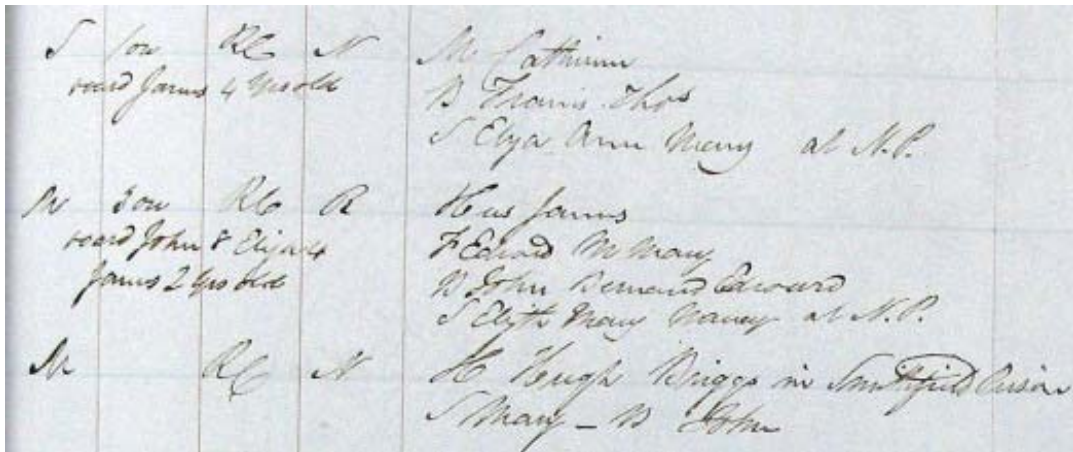 S 1 on RC N M Catherine
board James 4 yrs old B Francis Thos
S Eliza Ann Mary at N.P.
M 3 on RC R Hus James
board John 8 Elizabt F Edward M Mary
James 2 yrs old B John Bernard Edward
S Elizth Mary Nancy at N.P.
M RC N H Hugh Briggs in Smithfield Prison
S Mary - B John